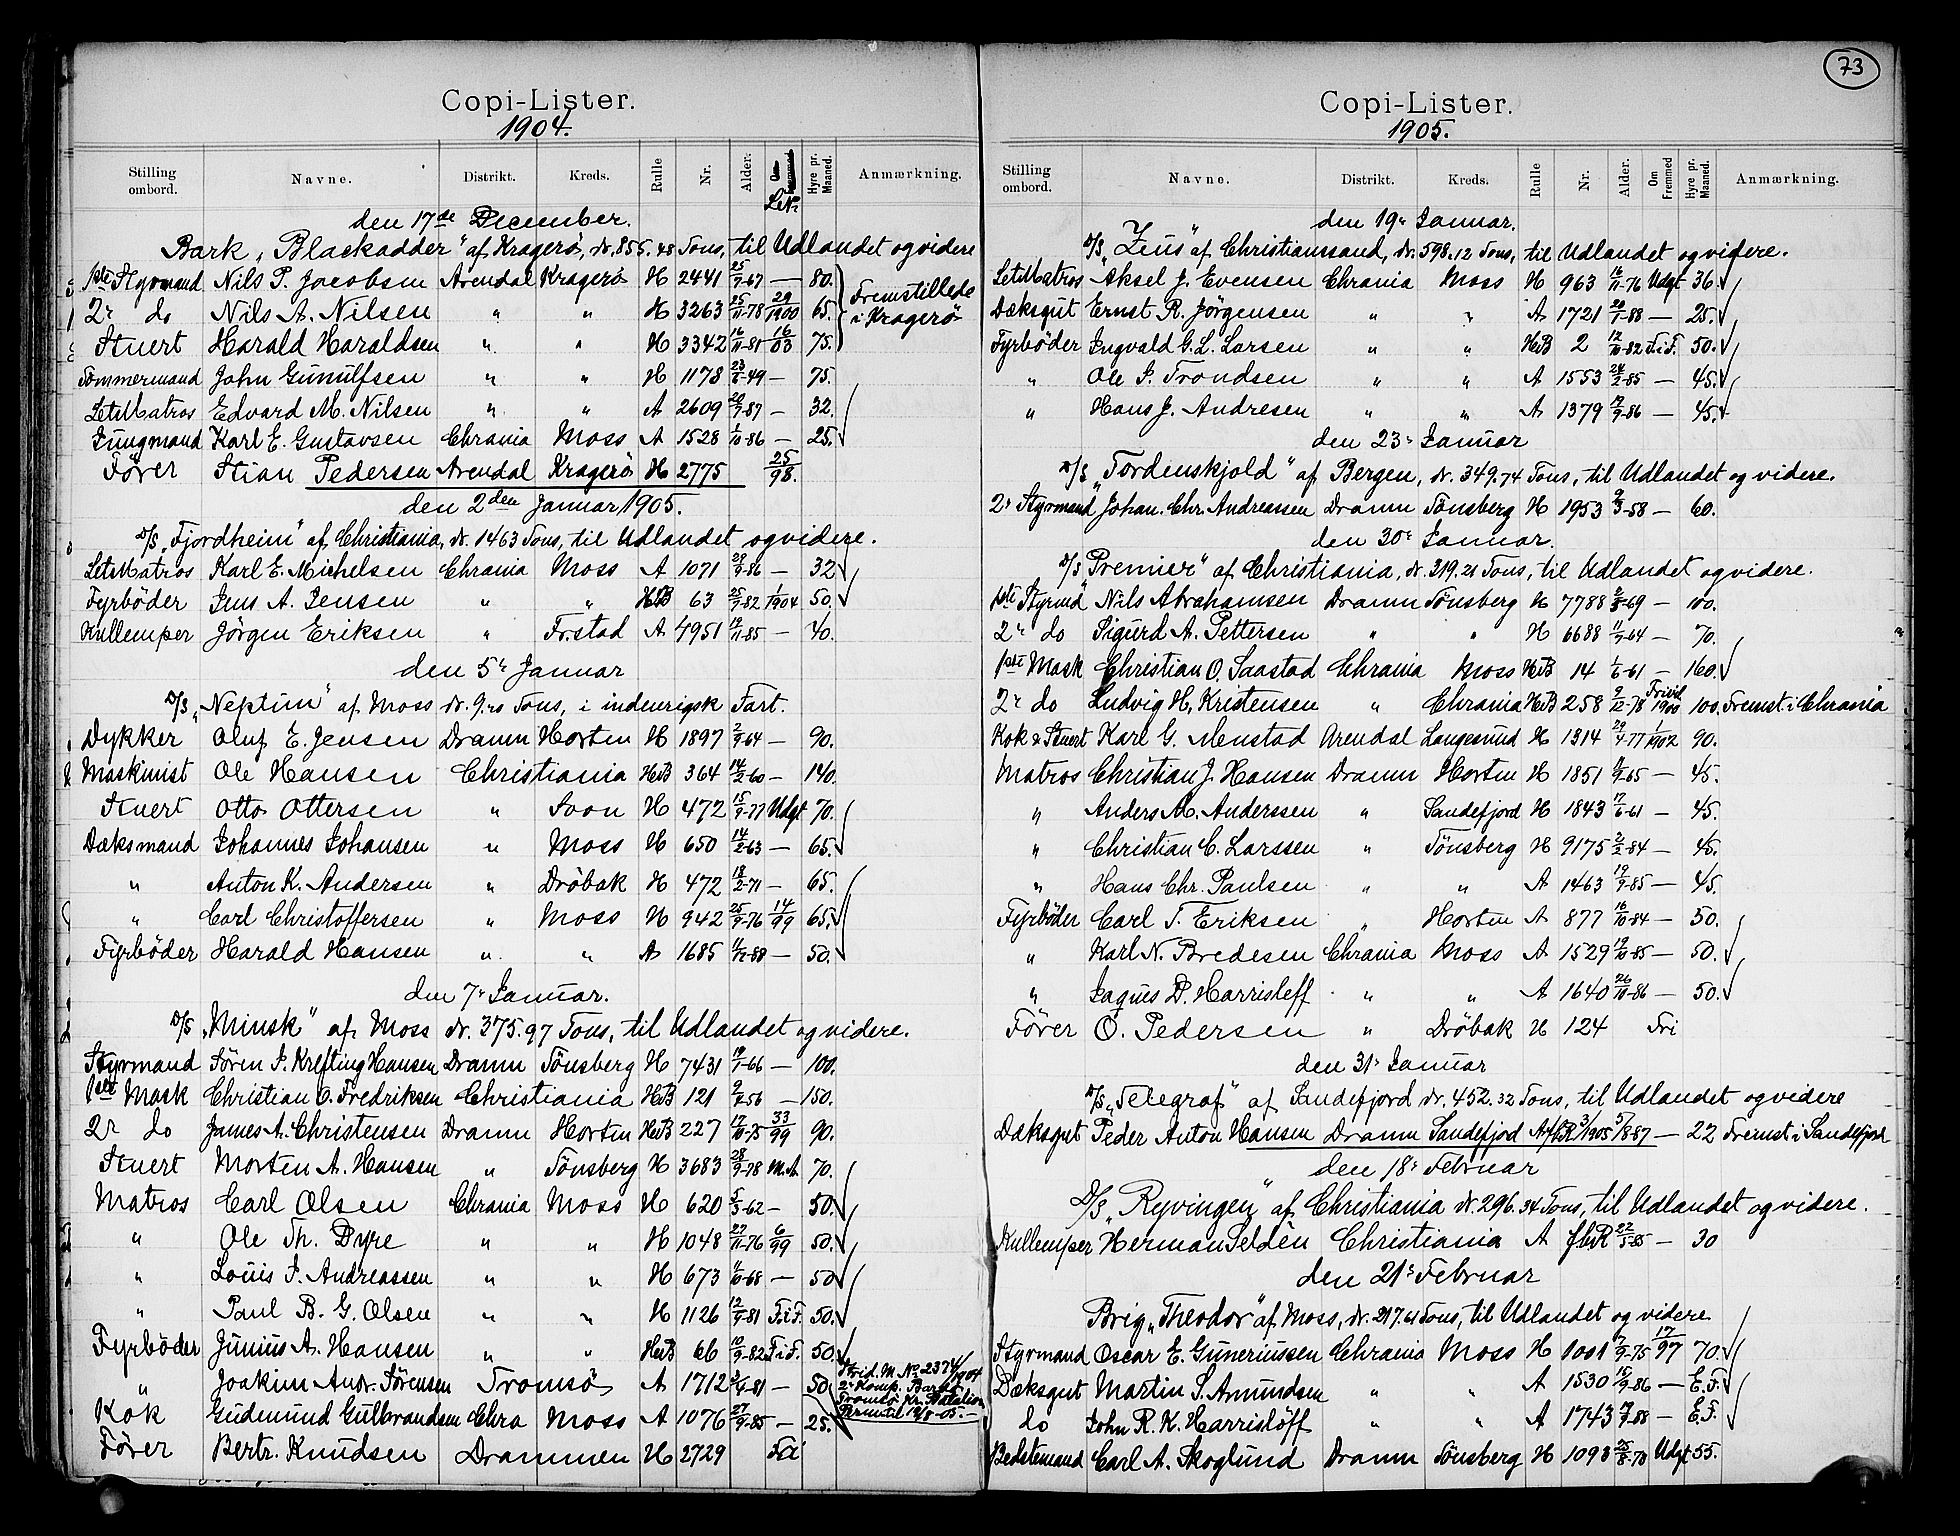 Copi-Lister.
1904.
Stilling ombord. Navne. Distrikt. Kreds. Rulle Nr. Alder. Om Fremmed Hyre pr. Maaned. Anmærkning.
den 17de December.
Bark „Blackadder" af Kragerö, dr. 855.48 Tons, til Udlandet og videre
1ste Styrmand Nils P. Jacobsen Arendal Kragerö H 2441 25/9-67 — 80. Fremstillede
2n do Nils A. Nilsen " " H 3263 25/11-78 29/1900 65. i Kragerö
Stuert Harald Haraldsen " " H 3342 16/11-81 16/03 75.
Tömmermand John Gunulfsen " " H 1178 23/6-49 — 75.
LetMatros Edvard M. Nilsen " " A 2609 20/9-87 — 32.
Jungmand Karl E. Gustavsen Chrania Moss A 1528 1/10-86 — 25.
Förer Stian Pedersen Arendal Kragerö H 2775 25/98.
den 2den Januar 1905.
D/S „Fjordheim" af Christiania, dr. 1463 Tons, til Udlandet og videre.
LetMatros Karl E. Michelsen Chrania Moss A 1071 28/9-86 — 32
Fyrböder Jens A. Jensen " " HdB 63 25/9-82 1/1904 50.
Kullemper Jörgen Eriksen " Fr.stad A 4951 17/11-85 — 40.
den 5n Januar
D/S „Neptun" af Moss dr. 9.10 Tons, i indenrigsk Fart.
Dykker Oluf E. Jensen Dramn Horten H 1897 2/9-64 — 90.
Maskinist Ole Hansen Christiania HdB 364 14/2-60 — 140.
Stuert Otto Ottersen " Svon H 472 15/9-77 Udgt 70.
Dæksmand Johannes Johansen " Moss H 650 14/2-63 — 65.
" Anton K. Andersen " Dröbak H 472 18/2-71 — 65.
" Carl Christoffersen " Moss H 942 25/9-76 14/99 65.
Fyrböder Harald Hansen " " A 1685 4/12-88 — 50.
den 7n Januar.
D/S „Minsk" af Moss dr. 375.97 Tons, til Udlandet og videre.
Styrmand Sören J. Krefting Hansen Dramn Tönsberg H 7431 19/1-66 — 100.
1ste Mask Christian O. Fredriksen Christiania HdB 121 9/11-56 — 150.
2n do James A. Christensen Dramn Horten HdB 227 17/10-75 33/99 90.
Stuert Morten A. Hansen " Tönsberg H 3683 28/9-78 M.A 70.
Matros Carl Olsen Chrania Moss H 620 5/3-62 — 50.
" Ole Th. Dyre " " H 1048 27/11-76 6/99 50.
" Louis J. Andreassen " " H 673 11/10-68 — 50
" Paul B. G. Olsen " " H 1126 12/9-81 F.i F. 50.
Fyrböder Junius A. Hansen " " HdB 66 10/9-82 F.i F. 50.
" Joakim Andr. Sörensen Tromsö A 1712 3/4-81 — 50 Strid. M. No 2374/1904
2 Komp. Bard
Tromsö Kr. Batalion
Permtil 19/8-05.
Kok Gudmund Gulbrandsen Chra Moss A 1076 27/9-85 — 25.
Förer Bertr. Knudsen Drammen H 2729 Fri
Copi-Lister.
1905.
73
Stilling ombord. Navne. Distrikt. Kreds. Rulle Nr. Alder. Om Fremmed Hyre pr. Maaned. Anmærkning.
den 19n Januar.
D/S „Zeus" af Christianssand, dr. 598.12 Tons, til Udlandet og videre.
LetMatros Aksel J. Evensen Chrania Moss H 963 16/11-76 Udgt 36.
Dæksgut Ernst R. Jörgensen " " A 1721 20/1-88 — 25.
Fyrböder Ingvald G. L. Larsen " " HdB 2 12/10-82 F.i F. 50.
" Ole J. Trondsen " " A 1553 24/2-85 — 45.
" Hans J. Andresen " " A 1379 17/9-86 — 45.
den 23n Januar
D/S „Tordenskjold" af Bergen, dr. 349.74 Tons, til Udlandet og videre.
2n Styrmand Johan. Chr. Andreassen Dramn Tönsberg H 1953 9/3-58 — 60.
den 30n Januar.
D/S „Premier" af Christiania, dr. 319.21 Tons, til Udlandet og videre.
1ste Styrmd Nils Abrahamsen Dramn Tönsberg H 7788 2/8-69 — 100.
2n do Sigurd A. Pettersen " " H 6688 11/9-64 — 70.
1ste Mask Christian O. Saastad Chrania Moss HdB 14 1/6-61 — 160.
2n do Ludvig H. Kristensen " Chrania HdB 258 9/12-78 Frivil 1900 100. Fremst. i Chrania
Kok & Stuert Karl G. Menstad Arendal Langesund H 1314 29/4-77 1/1902 90.
Matros Christian J. Hansen Dramn Horten H 1851 11/9-65 — 45.
" Anders M. Anderssen " Sandefjord H 1843 17/6-61 — 45.
" Christian C. Larssen " Tönsberg H 9175 2/2-84 — 45.
" Hans Chr. Paulsen " " A 1463 19/9-85 — 45.
Fyrböder Carl T. Eriksen " Horten A 877 16/10-84 — 50.
" Karl N. Bredesen Chrania Moss A 1529 19/10-85 — 50.
" Jaques D. Harrisleff " " A 1640 26/10-86 — 50.
Förer O. Pedersen " Dröbak H 124 Fri
den 31n Januar
D/S „Telegraf" af Sandefjord dr. 452.32 Tons, til Udlandet og videre
Dæksgut Peder Anton Hansen Dramn Sandefjord A fbR 3/1905 5/8-87 — 22 Fremst i Sandefjord
den 18n Februar
D/S „Ryvingen" af Christiania dr. 296.34 Tons, til Udlandet og videre.
Kullemper Herman Seldén Christiania A fbR 22/5-85 — 30
den 21n Februar
Brig „Theodor" af Moss, dr. 217.61 Tons, til Udlandet og videre
Styrmand Oscar E. Guneriussen Chrania Moss H 1001 7/9-75 17/97 70.
Dæksgut Martin S. Amundsen " " A 1530 15/9-86 — E.F.
do John R. K. Harrislöff " " A 1743 19/9-88 — E.F.
Bedstemand Carl A. Skoglund Dramn Tönsberg H 1098 25/8-70 Udgt 55.